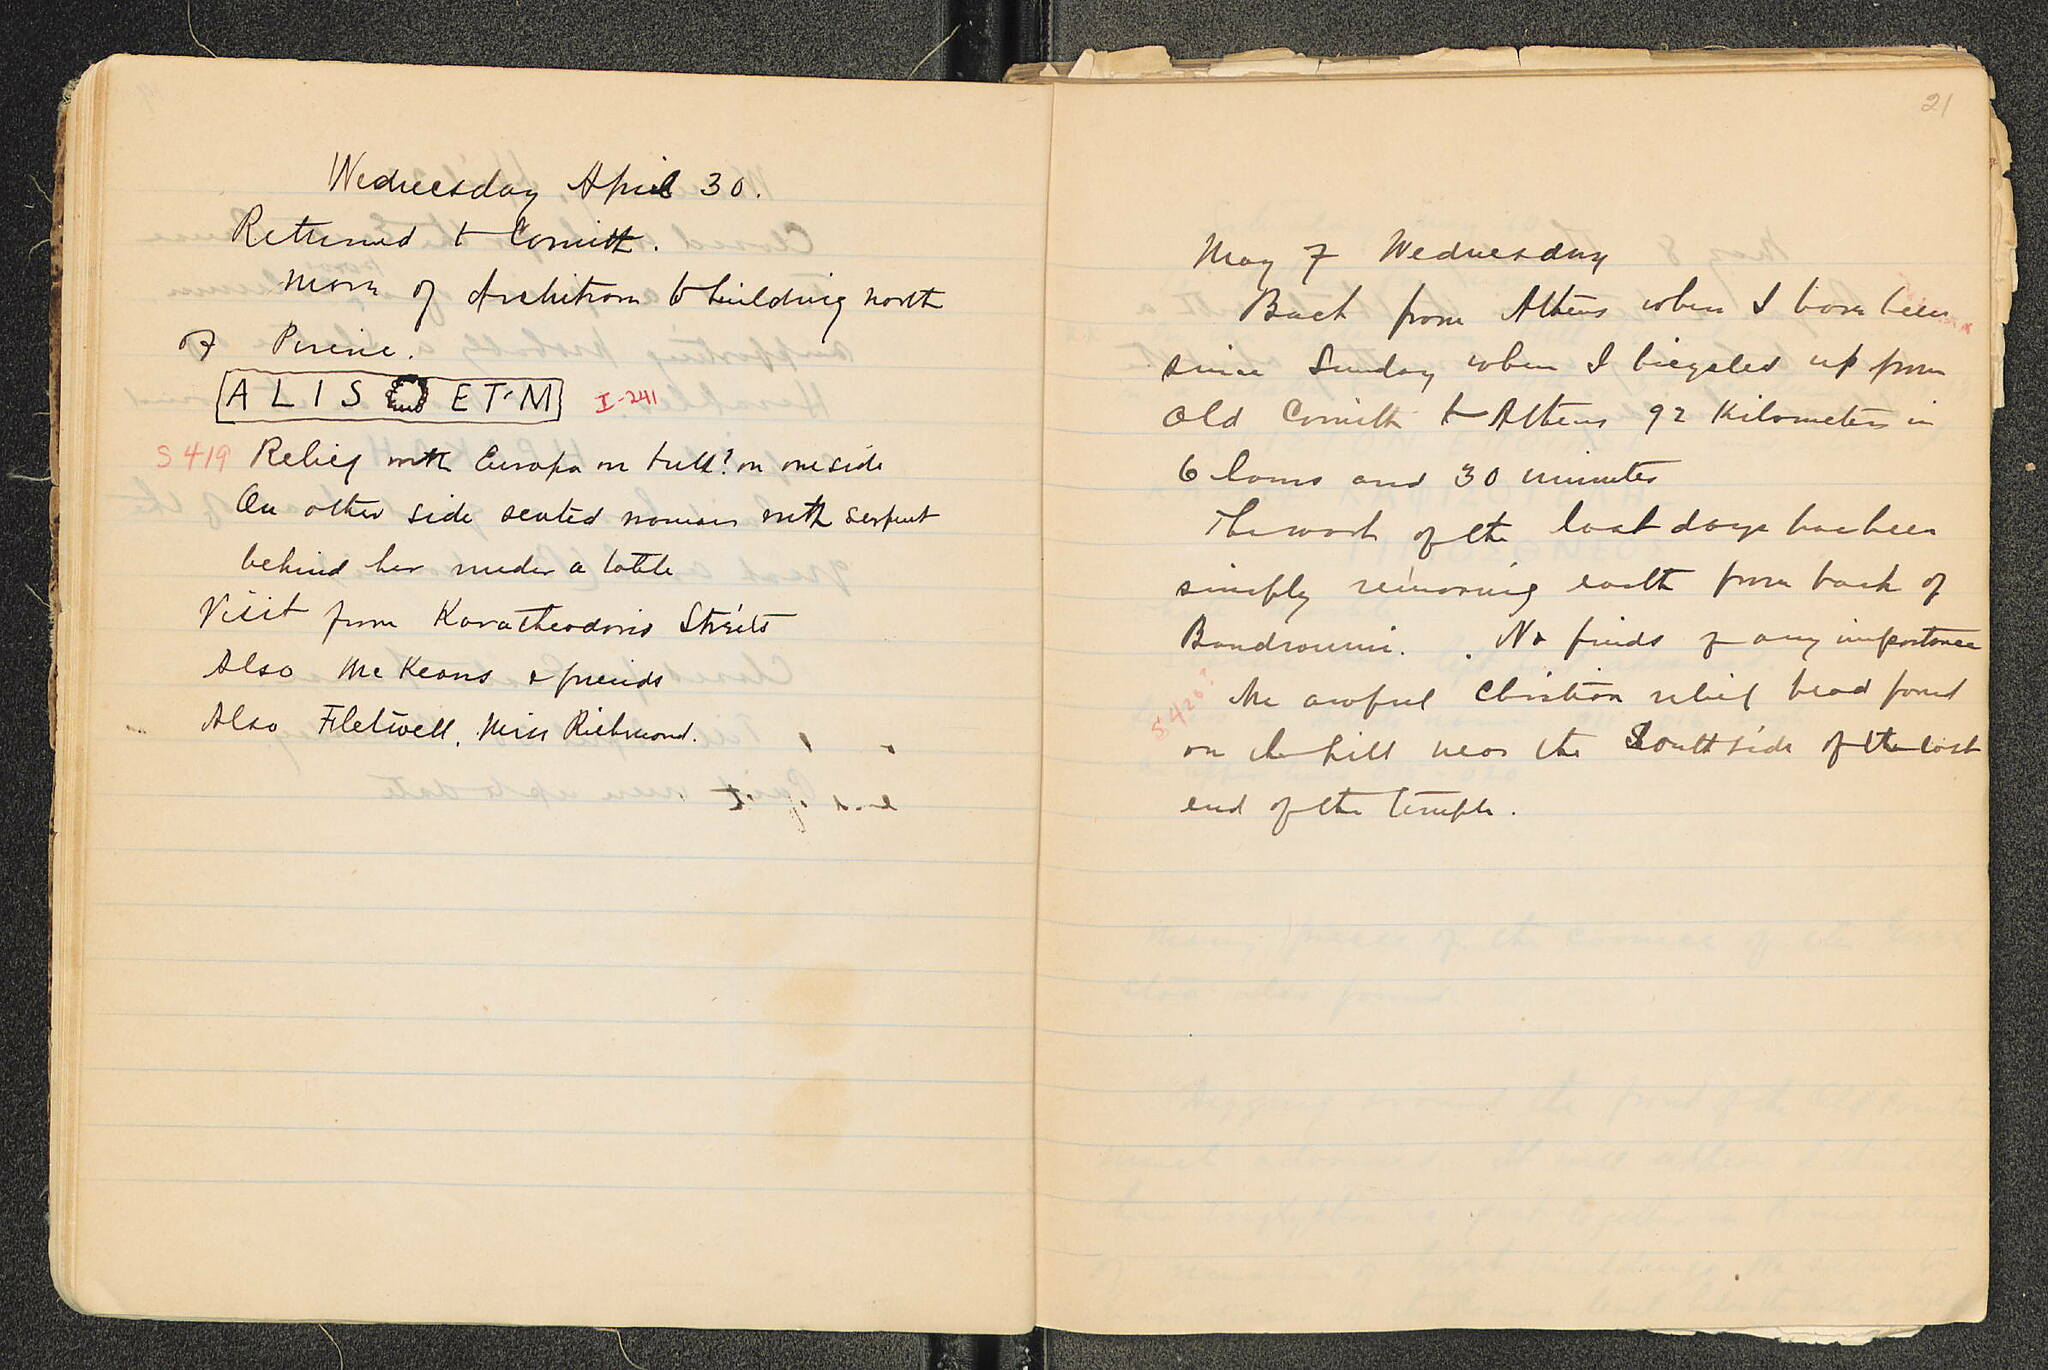 Wednesday April 30.
Returned to Corinth.
More of Architrave to building north
of Pirene.
ALIS ET·M I-241
S 419 Relief with Europa on bull? on one side
On other side seated woman with serpent
behind her under a
Visit from Karatheodoris Streits
Also McKeans & friends
Also Miss Richmond.
21
May 7 Wednesday
Back from Athens where I have been
since Sunday when I bicycled up from
Old Corinth to Athens 92 Kilometers in
6 hours and 30 minutes
The work of the last days has been
simply removing earth from back of
Boudroumi. No finds of any importance
S 420? An awful Christian relief head found
on the hill near the South side of the east
end of the temple.